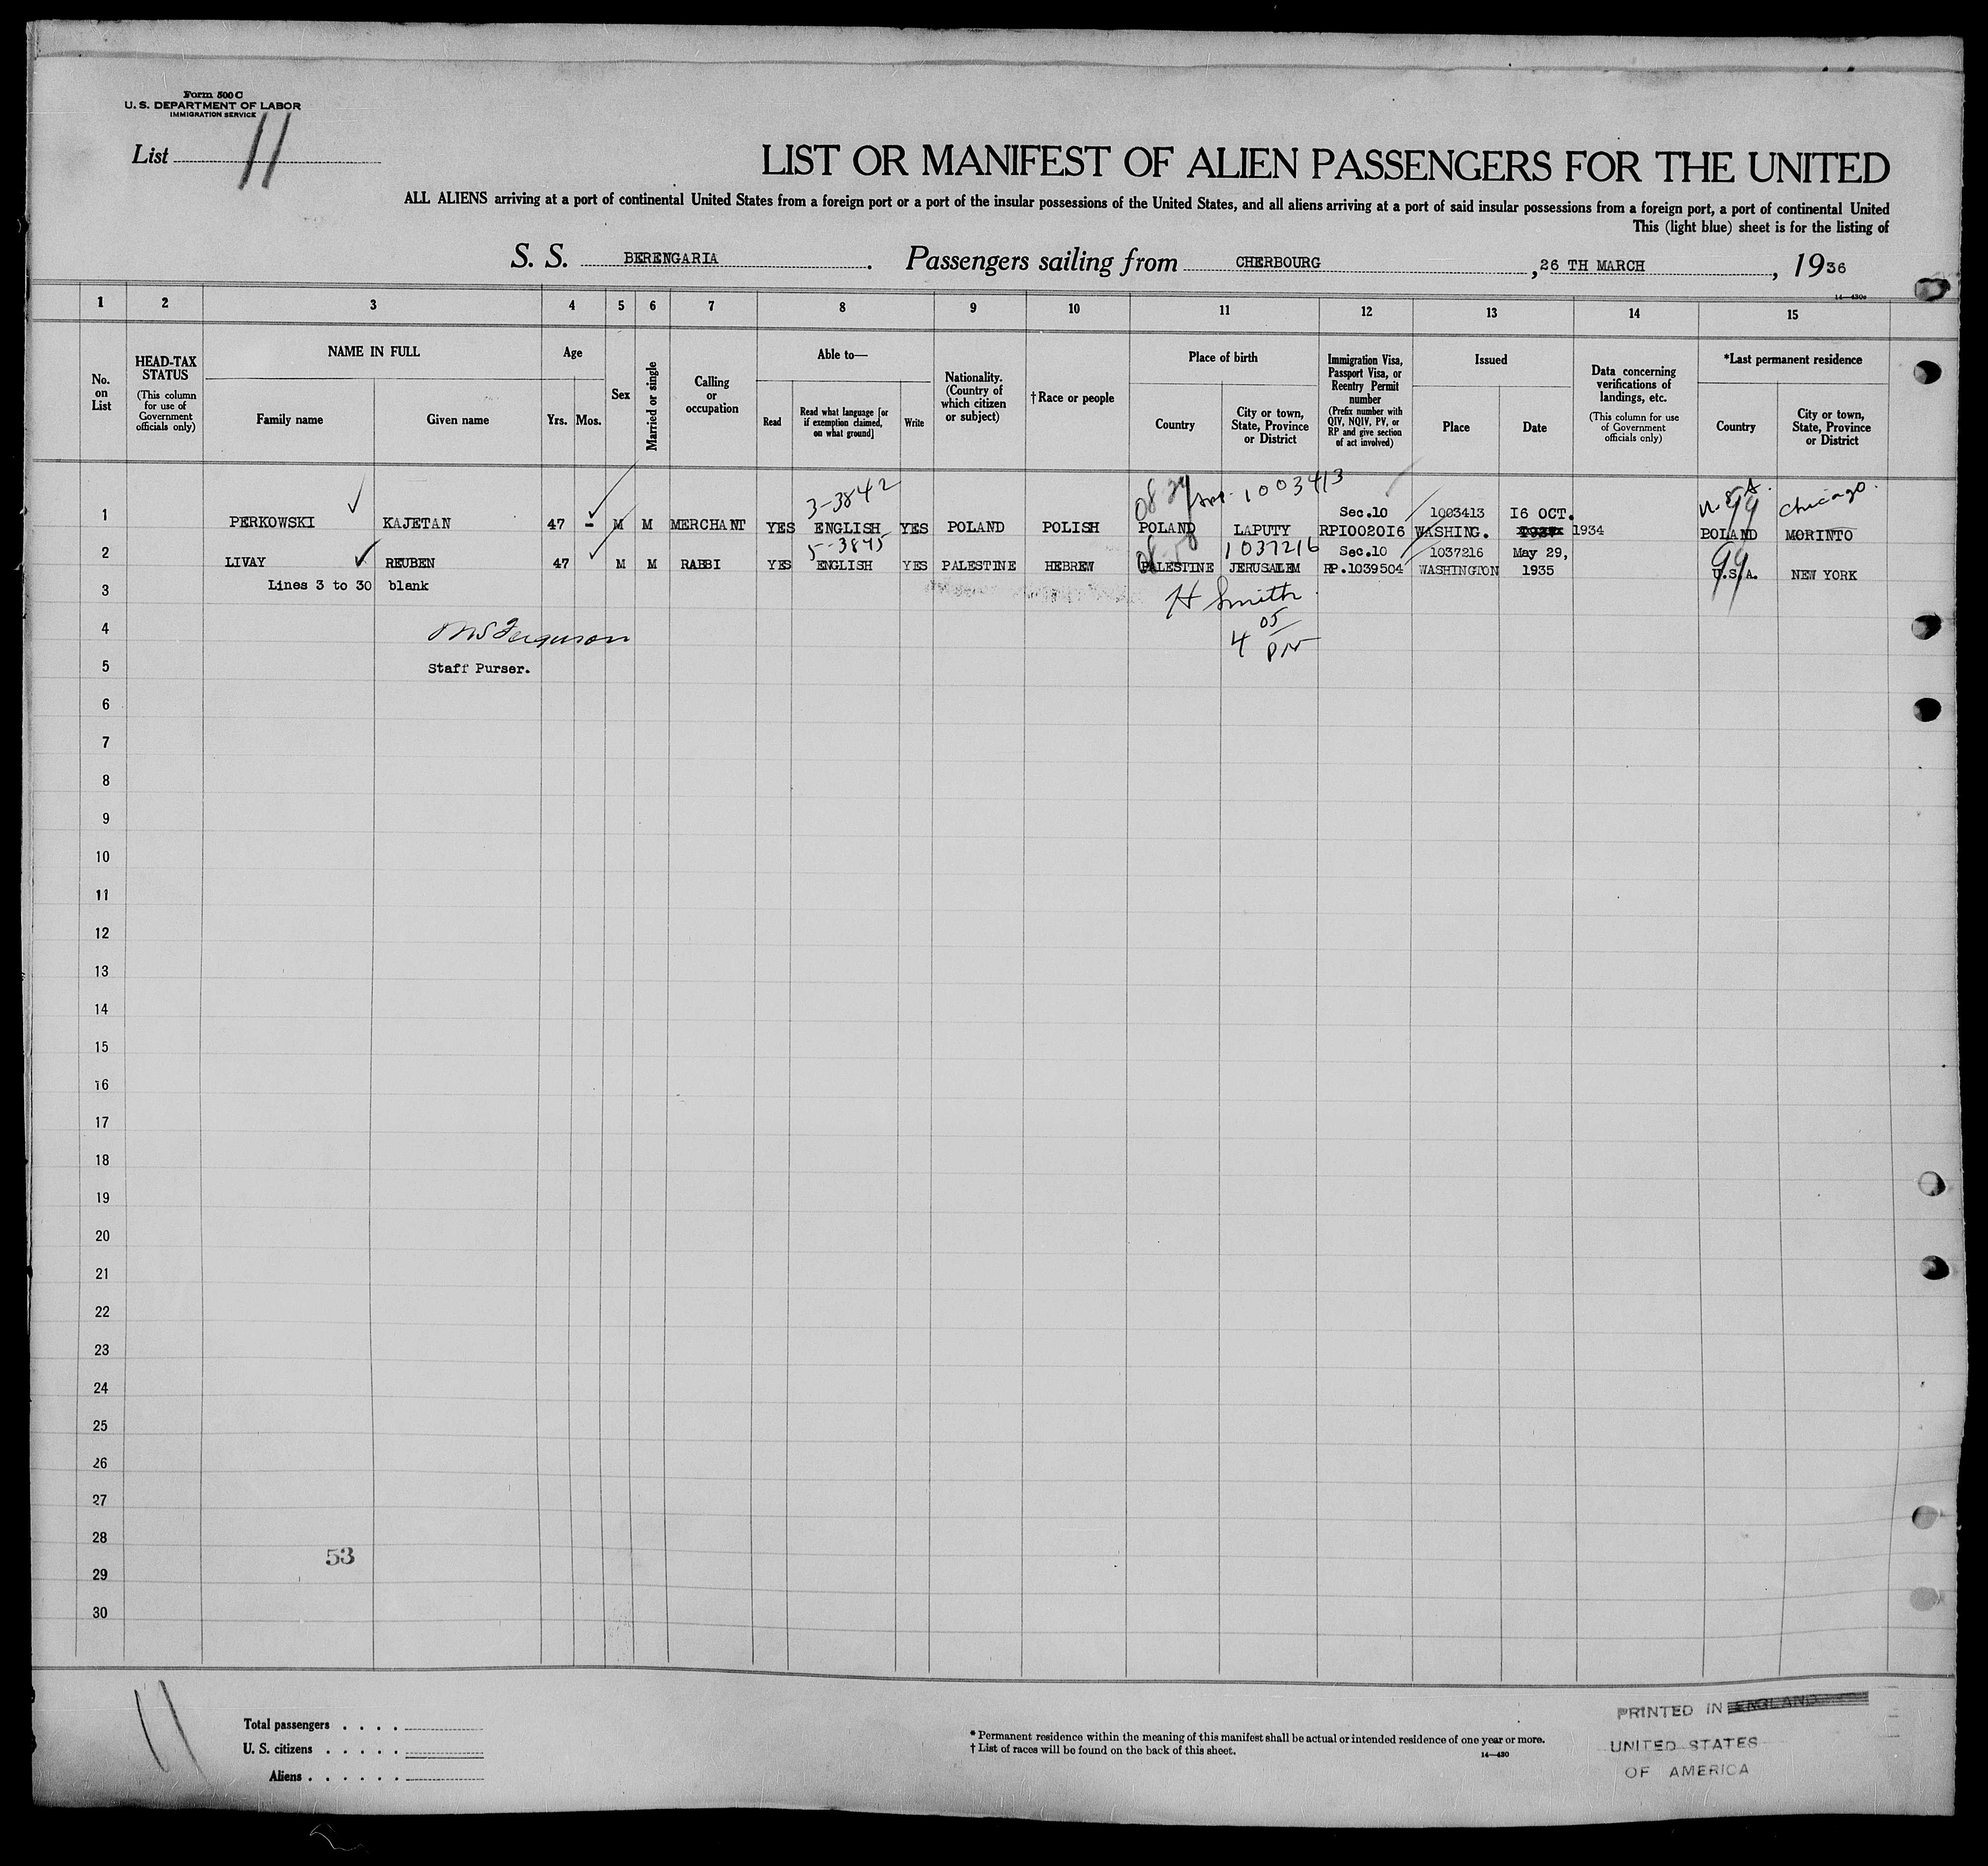 Form 500 C
U. S. DEPARTMENT OF LABOR
IMMIGRATION SERVICE
List 11
LIST OR MANIFEST OF ALIEN PASSENGERS FOR THE UNITED
ALL ALIENS arriving at a port of continental United States from a foreign port or a port of the insular possessions of the United States, and all aliens arriving at a port of said insular possessions from a foreign port, a port of continental United
This (light blue) sheet is for the listing of
S. S. BERENGARIA . Passengers sailing from CHERBOURG , 26 TH MARCH , 1936
1 2 3 4 5 6 7 8 9 10 11 12 13 14 15
No. on List
HEAD-TAX STATUS
(This column for use of Government officials only)
NAME IN FULL
Family name Given name
Age
Yrs. Mos.
Sex
Married or single
Calling or occupation
Able to—
Read
Read what language [or if exemption claimed, on what ground]
Write
Nationality. (Country of which citizen or subject)
† Race or people
Place of birth
Country
City or town, State, Province or District
Immigration Visa, Passport Visa, or Reentry Permit number
(Prefix number with QIV, NQIV, PV, or RP and give section of act involved)
Issued
Place Date
Data concerning verifications of landings, etc.
(This column for use of Government officials only)
*Last permanent residence
Country
City or town, State, Province or District
3-3842 1003413 U.S.A. Chicago.
Sec.10 1003413 16 OCT.
1 PERKOWSKI KAJETAN 47 - M M MERCHANT YES ENGLISH YES POLAND POLISH POLAND LAPUTY RP1002016 WASHING. 1934 POLAND MORINTO
99
5-3845 1037216 Sec.10 1037216 May 29,
2 LIVAY REUBEN 47 M M RABBI YES ENGLISH YES PALESTINE HEBREW PALESTINE JERUSALEM RP.1039504 WASHINGTON 1935 U.S.A. NEW YORK
99
Lines 3 to 30 blank
3
H Smith
4
Ferguson
4 05 PM
5
Staff Purser.
6
7
8
9
10
11
12
13
14
15
16
17
18
19
20
21
22
23
24
25
26
27
28
53
29
30
11
Total passengers . . . .
U. S. citizens . . . . .
Aliens . . . . . .
* Permanent residence within the meaning of this manifest shall be actual or intended residence of one year or more.
† List of races will be found on the back of this sheet.
14—430
PRINTED IN ENGLAND
UNITED STATES
OF AMERICA